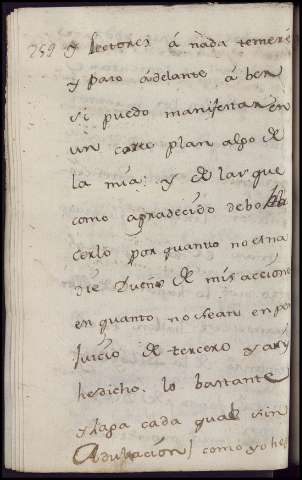 259 y lectores á nada temere
y paso ádelante á ber
si puedo manifestar en
un corto plan algo de
la mia: y de las que
como agradecido debo ha
cerlo por quanto no es na
die Dueño de mis accione
en quanto no sean en per
Juicio de tercero y asy
he dicho lo bastante
y haga cada qual sin
Adulación como yo he